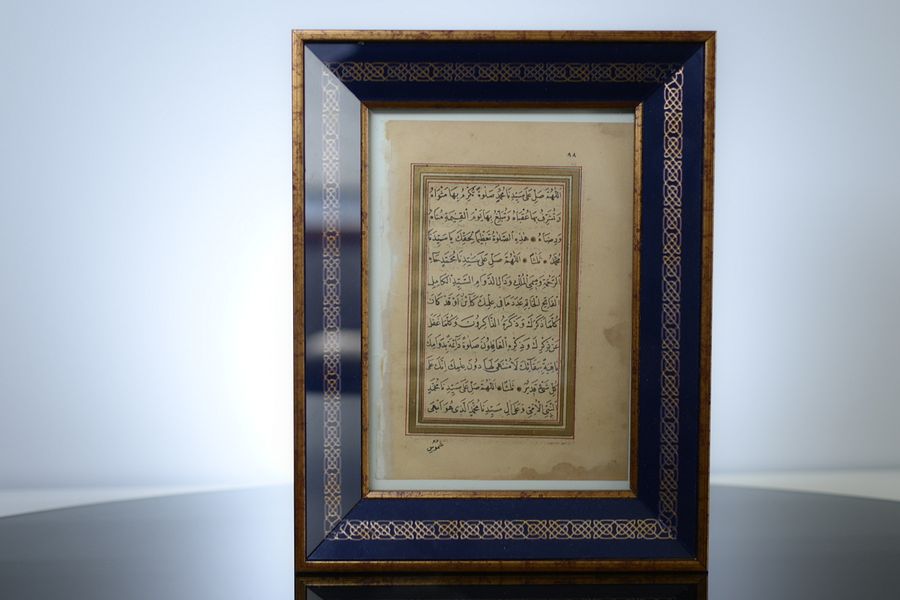 ٩٨
اللهم صل على سيدنا محمد صلوة تكرم بها مثواه
وتشرف بها عقباه وتبلغ بها يوم القيمة مناه
ورضاه هذه الصلوة تعظيما لحقك يا سيدنا
محمد ثلثا اللهم صل على سيدنا محمد حاء
الرحمة وميمي الملك ودال الدوام السيد الكامل
الفاتح الخاتم عدد ما في علمك كائن او قد كان
كلما ذكرك وذكره الذاكرون وكلما غفل
عن ذكرك وذكره الغافلون صلوة دائمة بدوامك
باقية ببقائك لا منتهى لها دون علمك انك على
كل شئ قدير ثلثا اللهم صل على سيدنا محمد
النبي الامي وعلى ال سيدنا محمد الذى هو ابهى
شموس